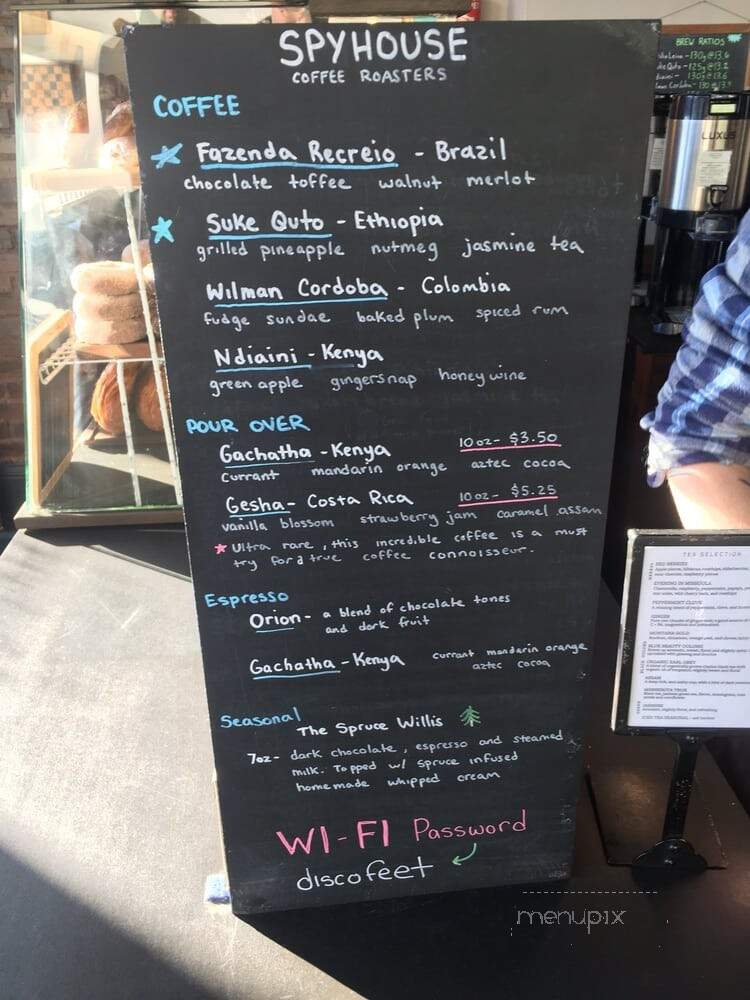 SPYHOUSE
COFFEE ROASTERS
COFFEE
Fazenda Recreio - Brazil
chocolate toffee walnut merlot
Suke Quto - Ethiopia
grilled pineapple nutmeg jasmine tea
Wilman Cordoba - Colombia
fudge sundae baked plum spiced rum
Ndiaini - Kenya
green apple gingersnap honey wine
POUR OVER
Gachatha - Kenya 10oz- $3.50
currant mandarin orange aztec cocoa
Gesha - Costa Rica 10oz- $5.25
vanilla blossom strawberry jam caramel assam
Ultra rare, this incredible coffee is a must
try for a true coffee connoisseur.
Espresso
Orion - a blend of chocolate tones
and dark fruit
Gachatha - Kenya currant mandarin orange
aztec cocoa
Seasonal
The Spruce Willis
7oz- dark chocolate, espresso and steamed
milk. Topped w/ spruce infused
homemade whipped cream
WI-FI Password
discofeet
BREW RATIOS
LUXUS
TEA SELECTION
RED BERRIES
EVENING IN MISSOULA
PEPPERMINT CLOVE
GINGER
MONTANA GOLD
BLUE BEAUTY OOLONG
ORGANIC EARL GREY
ASSAM
MINNESOTA TRUE
JASMINE
menupix